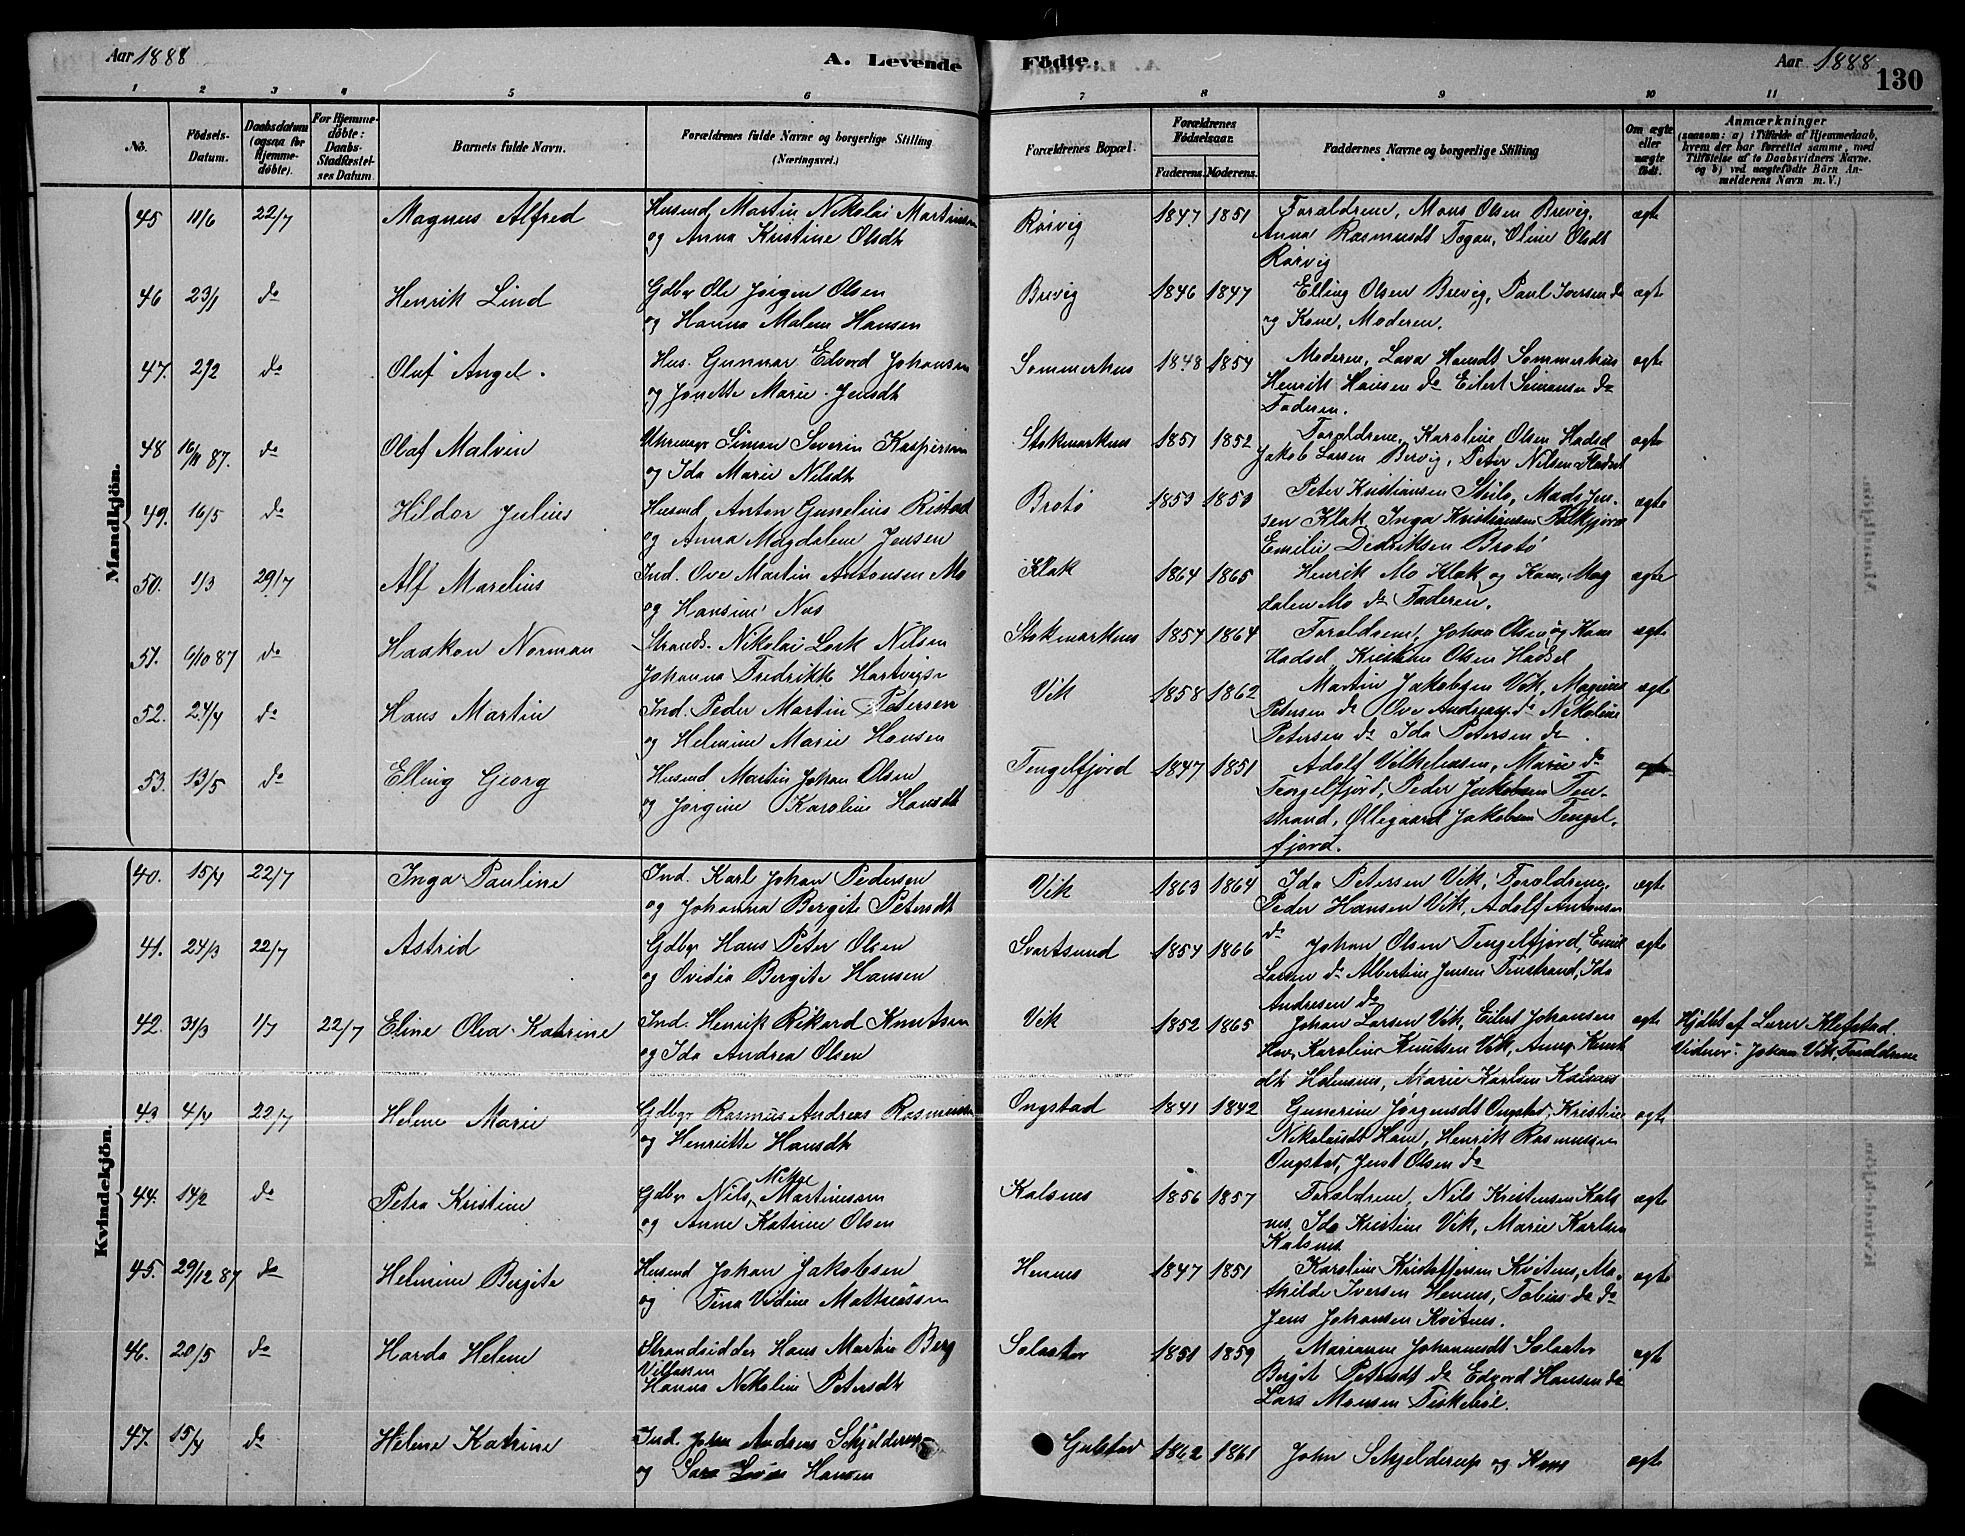 Aar 1888
A. Levende
Födte.
Aar 1888
130
1 2 3 4 5 6 7 8 9 10 11
No.
Födsels-Datum.
Daabsdatum (ogsaa for Hjemme-döbte).
For Hjemme-döbte: Daabs-Stadfæstel-ses Datum.
Barnets fulde Navn.
Forældrenes fulde Navne og borgerlige Stilling (Næringsvei.)
Forældrenes Bopæl.
Forældrenes Födselsaar.
Faderens. Moderens.
Faddernes Navne og borgerlige Stilling
Om ægte eller uægte födt.
Anmærkninger
(saasom: a) i Tilfælde af Hjemmedaab,
hvem der har forrettet samme, med
Tilföielse af to Daabsvidners Navne.
og b) ved uægtefödte Börn An-
melderens Navn m. V.)
Mandkjön.
45 11/6 22/7 Magnus Alfred Husmd Martin Nikolai Martinsen Rörvig 1847 1851 Forældrene, Mons Olsen Brevig, ægte
og Anna Kristine Olsdt Anna Rasmusdt Togan, Oline Olsdt
Rörvig
46 23/1 do Henrik Lind Gdbr Ole Jörgen Olsen Brevig 1846 1847 Elling Olsen Brevig, Paul Iversen do ægte
og Hanna Malene Hansen og Kone, Moderen.
47. 2/2 do Oluf Angel. Hus. Gunnar Edvard Johansen Sommerhus 1848 1854 Moderen, Lava Hansdt Sommerhus ægte
og Jonette Marie Jensdt Henrik Hansen do Eilert Simonsen do
Faderen.
48 16/11 87. do Olaf Malvin Uhrmgr Simon Severin Kaspersen Stokmarknes 1851 1852 Forældrene, Karoline Olsen Hadsel ægte
og Ida Marie Nilsdt Jakob Larsen Brevig, Peter Nilsen Hadsel
49. 16/5 do Hildor Julius Husmd Anton Gunelius Ristad Brotö 1853 1853 Peter Kristiansen Stilo, Mads Jen- ægte
og Anna Magdalene Jensen sen Klak Inga Kristiansen Falkfjord
Emilie Dedriksen Brotö
50. 1/3 29/7 Alf Marelius Ind. Ove Martin Antonsen Mo Klak 1864 1865 Henrik Mo Klak og Kone, Mag ægte
og Hansine Nos dalen Mo do Faderen.
51. 6/10 87 do Haakon Norman Strands. Nikolai Lork Nilsen Stokmarknes 1854 1864 Forældrene, Johan Olsen og Kone ægte
Johanna Fredrikke Hartvigs Hadsel, Kristine Olsen Hadsel
52. 24/4 do Hans Martin Ind. Peder Martin Petersen Vik 1858 1862 Martin Jakobsen Vik, Magnus ægte
og Helmine Marie Hansen Petersen do Ove Andreas. do Nikoline
Petersen do Ida Petersen do.
53. 13/5 do Elling Georg Husmd Martin Johan Olsen Tengelfjord 1847 1851 Adolf Vilhelmsen, Marie do ægte
og Jörgine Karoline Hansdt Tengelfjord, Peder Jakobsen Ten-
strand, Ollegaard Jakobsen Tengel-
fjord.
Kvindekjön.
40. 15/4 22/7 Inga Pauline Ind. Karl Johan Pedersen Vik 1863 1864 Ida Petersen Vik, Forældrene, ægte
og Johanna Bergite Petersdt Peder Hansen Vik, Adolf Antonsen
do
41. 24/3 22/7 Astrid Gdbr Hans Peter Olsen Svartsund 1854 1866 Johan Olsen Tengelfjord, Emil ægte
og Ovidia Bergite Hansen Larsen do Albertine Jensen Tenstrand, Ida
Andresen do
42. 31/3 1/7 22/7 Eline Olea Katrine Ind. Henrik Rikard Knutsen Vik 1852 1865 Johan Larsen Vik, Eilert Johansen ægte Hjdbt af Lærer Klefstad.
og Ida Andrea Olsen Hov, Karoline Knutsen Vik, Anne Knut Vidner: Johan Vik, Forældrene
dt Holmsnes, Marie Karlsen Kalsnes
43 4/4 22/7 Helene Marie Gdbr Rasmus Andreas Rasmussen Ongstad 1841 1842 Gunerine Jörgensdt Ongstad, Kristine ægte
og Henriette Hansdt Nikolaisdt Hove, Henrik Rasmussen
Ongstad, Just Olsen do
44. 14/2 do Petra Kristine Gdbr Nils Mettge Martinussen Kalsnes 1856 1857 Forældrene, Nils Kristensen Kals ægte
og Anne Katrine Olsen nes, Ida Kristine Vik, Marie Karlsen
Kalsnes
45. 29/12 87 do Helmine Bergite Husmd Johan Jakobsen Hennes 1847 1851 Karoline Kristoffersen Kvitnes, Ma- ægte
og Tina Vidine Mathiassen thilde Iversen Hennes, Tobias do do
Jens Johansen Kvitnes.
46. 20/5 do Harda Helene Strandsidder Hans Martin Berg Solaater 1851 1859 Marianne Johannesdt Solaater ægte
Villassen
Hanna Nikoline Petersdt Bergite Petersdt do Edvard Hansen do
Lars Monsen Fiskeböl.
47. 15/4 do Helene Katrine Ind. John Andreas Schjelderup Gulstad 1862 1861 John Schjelderup og Kone ægte
og Sara Hansen